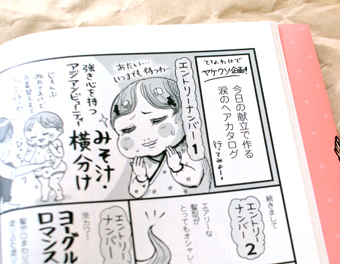 てなわけで
ヤケクソ企画!
今日の献立で作る
涙のヘアカタログ
行てみよー!
エントリーナンバー1
あたい…
いつまでも待つわ…
みそ汁・
横分け
強き心を持つ
アジアンビューティー
続きまして
エントリー
ナンバー
2
エアリーな
髪型が
とってもオシャレ!
エントリー
ナンバー
ヨーグル
ロマンス